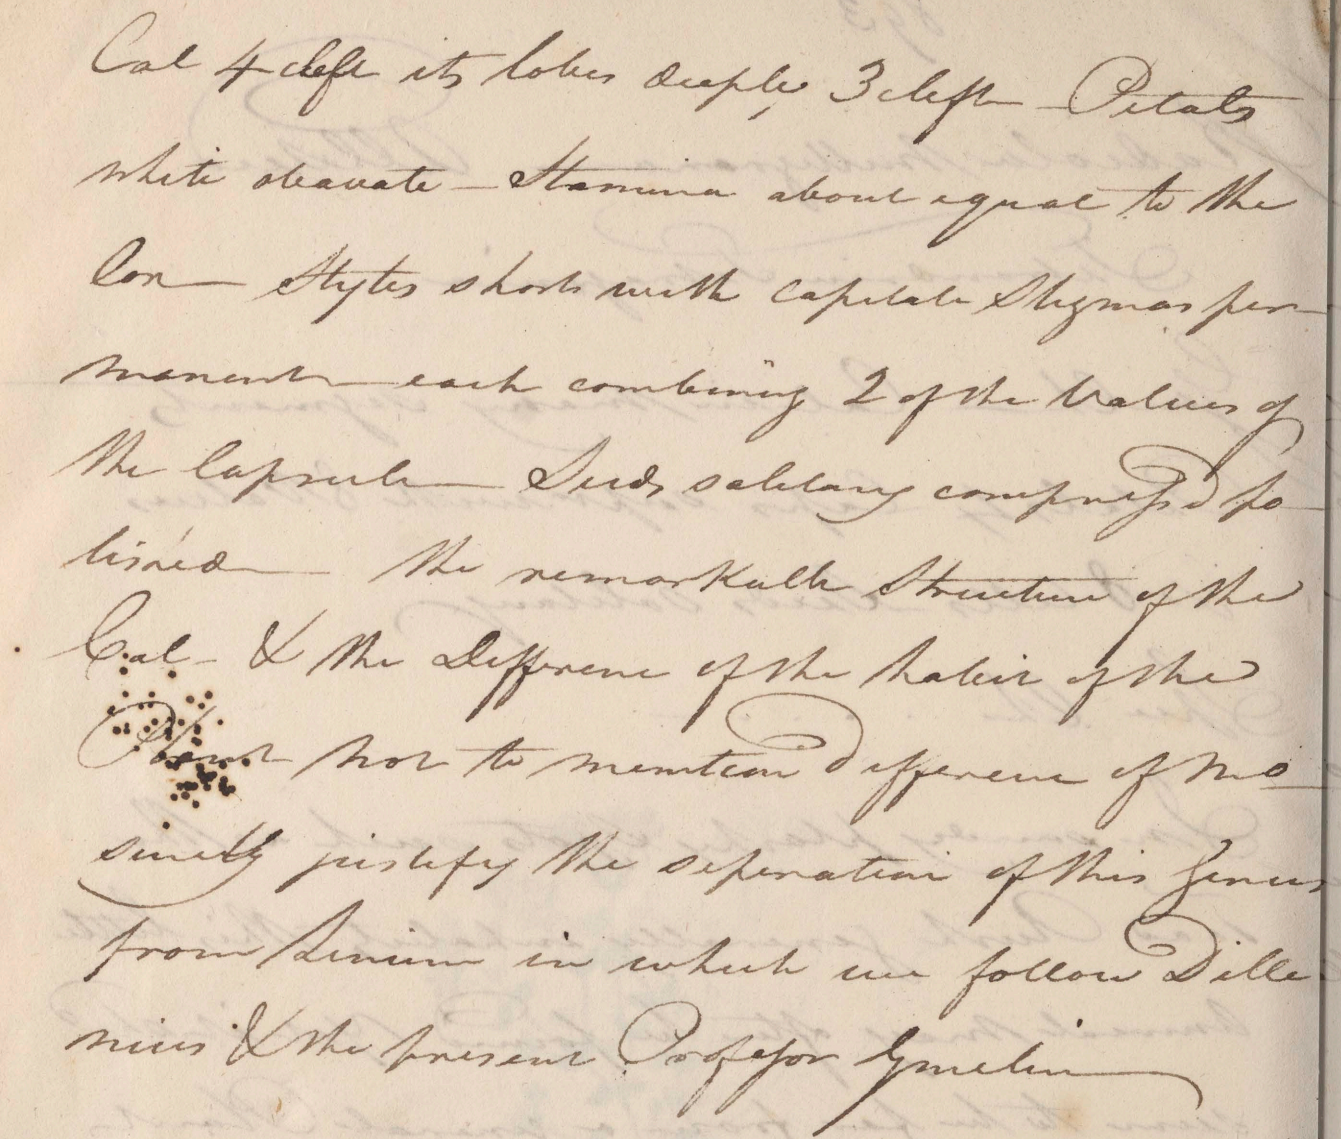 Cal 4 cleft its lobes deeply 3 cleft — Petals
white obovate — Stamina about equal to the
Cor — Styles short with capitate Stigmas per-
manent — each combining 2 of the Valves of
the Capsule — Seeds solitary compressd po-
lished — the remarkable Structure of the
Cal — & the Difference of the habit of the
Plant not to mention Difference of No
surely justify the seperation of this Genus
from Linum in which we follow Dille
nius & the present Professor Gmelin —